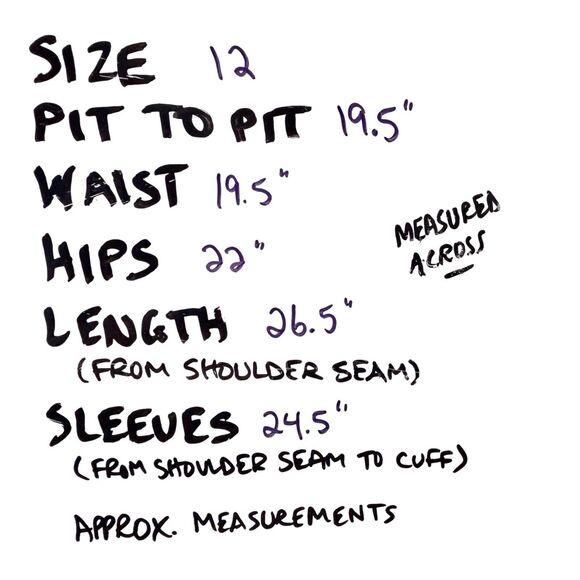 SIZE 12
PIT TO PIT 19.5"
WAIST 19.5"
HIPS 22"
MEASURED
ACROSS
LENGTH 26.5"
(FROM SHOULDER SEAM)
SLEEVES 24.5"
(FROM SHOULDER SEAM TO CUFF)
APPROX. MEASUREMENTS